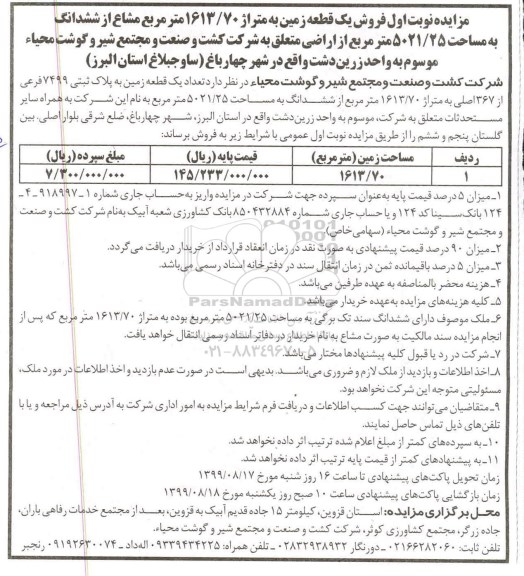 مزایده نوبت اول فروش یک قطعه زمین به متراژ ۱۶۱۳/۷۰ متر مربع مشاع از ششدانگ
به مساحت ۵۰۲۱/۲۵ متر مربع از اراضی متعلق به شرکت کشت و صنعت و مجتمع شیر و گوشت محیاء
موسوم به واحد زرین دشت واقع در شهر چهارباغ (ساوجبلاغ استان البرز)
شرکت کشت و صنعت و مجتمع شیر و گوشت محیاء در نظر دارد تعداد یک قطعه زمین به پلاک ثبتی ۷۴۹۹ فرعی
از ۳۶۷ اصلی به متراژ ۱۶۱۳/۷۰ متر مربع از ششدانگ به مساحت ۵۰۲۱/۲۵ متر مربع به نام این شرکت به همراه سایر
مستحدثات متعلق به شرکت، موسوم به واحد زرین دشت واقع در استان البرز، شهر چهارباغ، ضلع شرقی بلوار اصلی، بین
گلستان پنجم و ششم را از طریق مزایده نوبت اول عمومی با شرایط زیر به فروش برساند:
ردیف مساحت زمین (متر مربع) قیمت پایه (ریال) مبلغ سپرده (ریال)
۱ ۱۶۱۳/۷۰ ۱۴۵/۲۳۳/۰۰۰/۰۰۰ ۷/۳۰۰/۰۰۰/۰۰۰
۱_ میزان ۵ درصد قیمت پایه به عنوان سپرده جهت شرکت در مزایده واریز به حساب جاری شماره ۱_۹۱۸۹۹۷_۴_
۱۲۴ بانک سینا کد ۱۲۴ و یا حساب جاری شماره ۸۵۰۴۳۲۸۸۴ بانک کشاورزی شعبه آبیک به نام شرکت کشت و صنعت
و مجتمع شیر و گوشت محیاء (سهامی خاص)
۲_ میزان ۹۰ درصد قیمت پیشنهادی به صورت نقد در زمان انعقاد قرارداد از خریدار دریافت می‌گردد.
۳_ میزان ۵ درصد باقیمانده ثمن در زمان انتقال سند در دفترخانه اسناد رسمی می‌باشد.
۴_ هزینه محضر بالمناصفه به عهده طرفین می‌باشد.
۵_ کلیه هزینه‌های مزایده به عهده خریدار می‌باشد.
۶_ ملک موصوف دارای ششدانگ سند تک برگی به مساحت ۵۰۲۱/۲۵ متر مربع بوده به متراژ ۱۶۱۳/۷۰ متر مربع که پس از
انجام مزایده سند مالکیت به صورت مشاع به نام خریدار در دفاتر اسناد رسمی انتقال خواهد یافت.
۷_ شرکت در رد یا قبول کلیه پیشنهادها مختار می‌باشد.
۸_ اخذ اطلاعات و بازدید از ملک لازم و ضروری می‌باشد. بدیهی است در صورت عدم بازدید و اخذ اطلاعات در مورد ملک،
مسئولیتی متوجه این شرکت نخواهد بود.
۹_ متقاضیان می‌توانند جهت کسب اطلاعات و دریافت فرم شرایط مزایده به امور اداری شرکت به آدرس ذیل مراجعه و یا با
تلفن‌های ذیل تماس حاصل نمایند.
۱۰_ به سپرده‌های کمتر از مبلغ اعلام شده ترتیب اثر داده نخواهد شد.
۱۱_ به پیشنهادهای کمتر از قیمت پایه ترتیب اثر داده نخواهد شد.
زمان تحویل پاکت‌های پیشنهادی تا ساعت ۱۶ روز شنبه مورخ ۱۳۹۹/۰۸/۱۷
زمان بازگشایی پاکت‌های پیشنهادی ساعت ۱۰ صبح روز یکشنبه مورخ ۱۳۹۹/۰۸/۱۸
محل برگزاری مزایده: استان قزوین، کیلومتر ۱۵ جاده قدیم آبیک به قزوین، بعد از مجتمع خدمات رفاهی یاران،
جاده زرگر، مجتمع کشاورزی کوثر، شرکت کشت و صنعت و مجتمع شیر و گوشت محیاء.
تلفن ثابت: ۰۲۱۶۶۲۸۲۰۶۰_ دورنگار ۰۲۸۳۲۹۳۸۹۳۲ _ تلفن همراه: ۰۹۳۳۹۴۳۴۲۲۵ اله‌داد _ ۰۹۱۹۲۶۳۰۰۷۴ رنجبر
ParsNamadData
۰۲۱-۸۸۳۴۹۶۷۰-۵